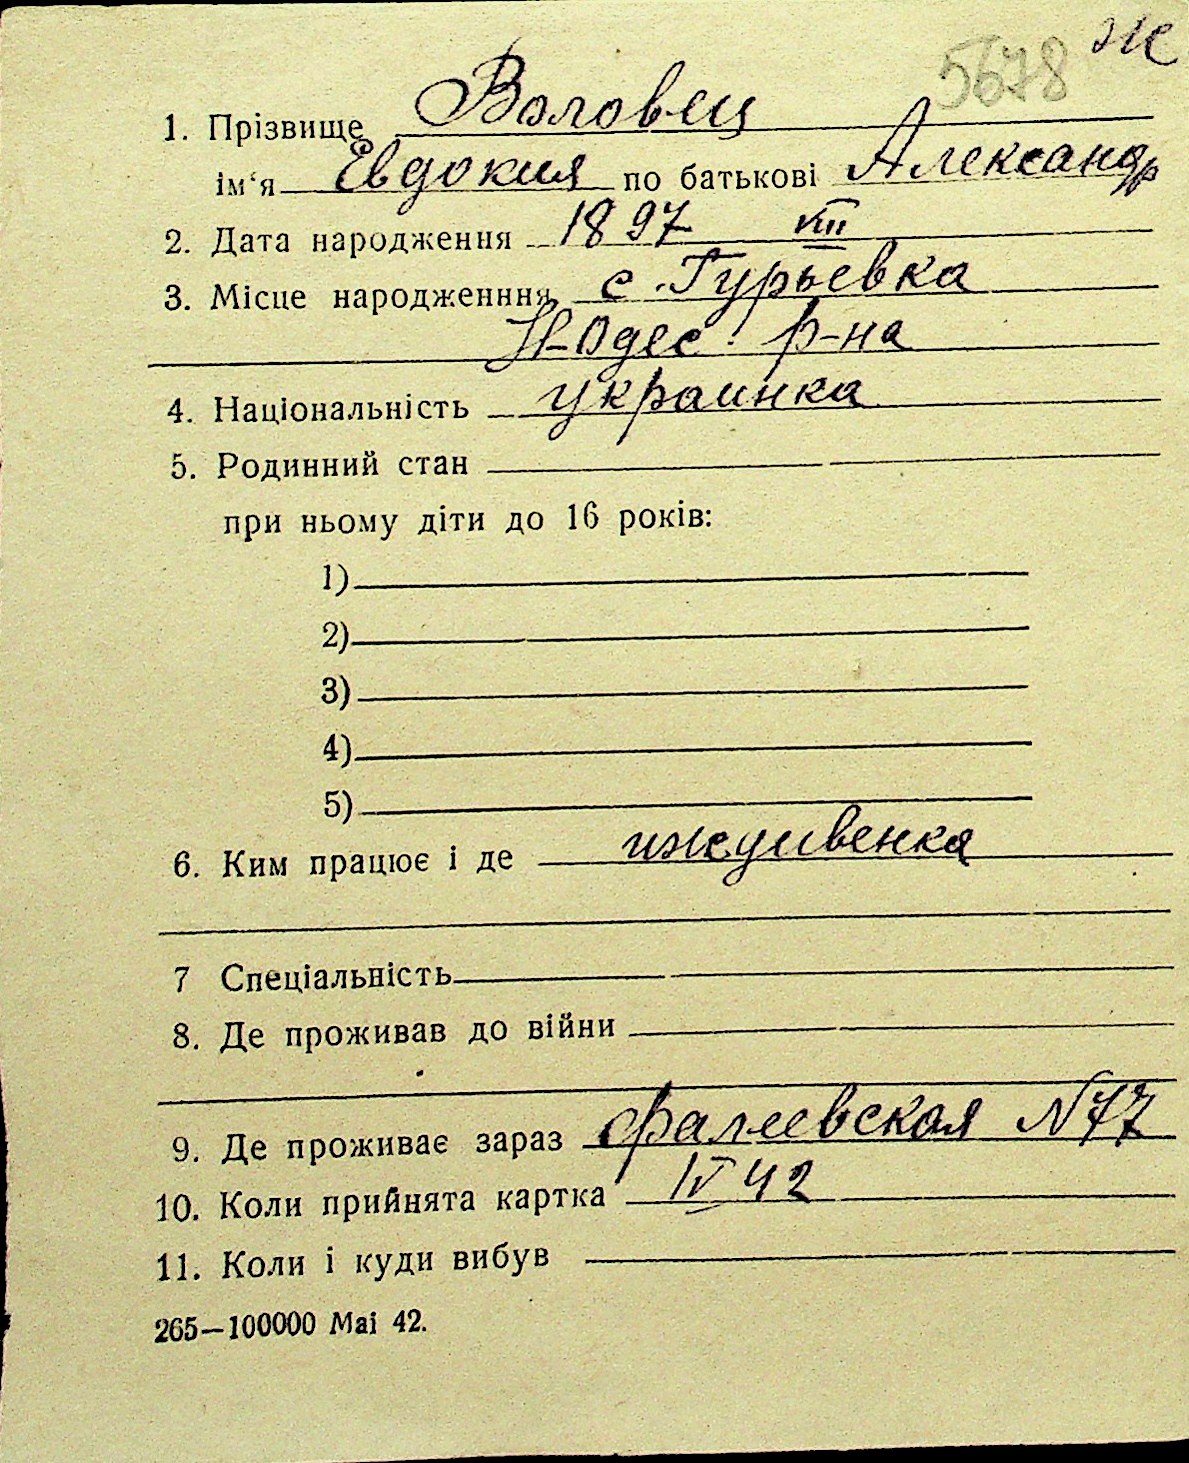 5678 Ж
1. Прізвище Воловец
ім‘я Евдокия по батькові Александр
2. Дата народження 1897 VIII
3. Місце народженння с. Гурьевка
Н-Одес. р-на
4. Національність украинка
5. Родинний стан
при ньому діти до 16 років:
1)
2)
3)
4)
5)
6. Ким працює і де иждивенка
7 Спеціальність
8. Де проживав до війни
9. Де проживає зараз Фалеевская N 77
10. Коли прийнята картка IV 42
11. Коли і куди вибув
265—100000 Mai 42.